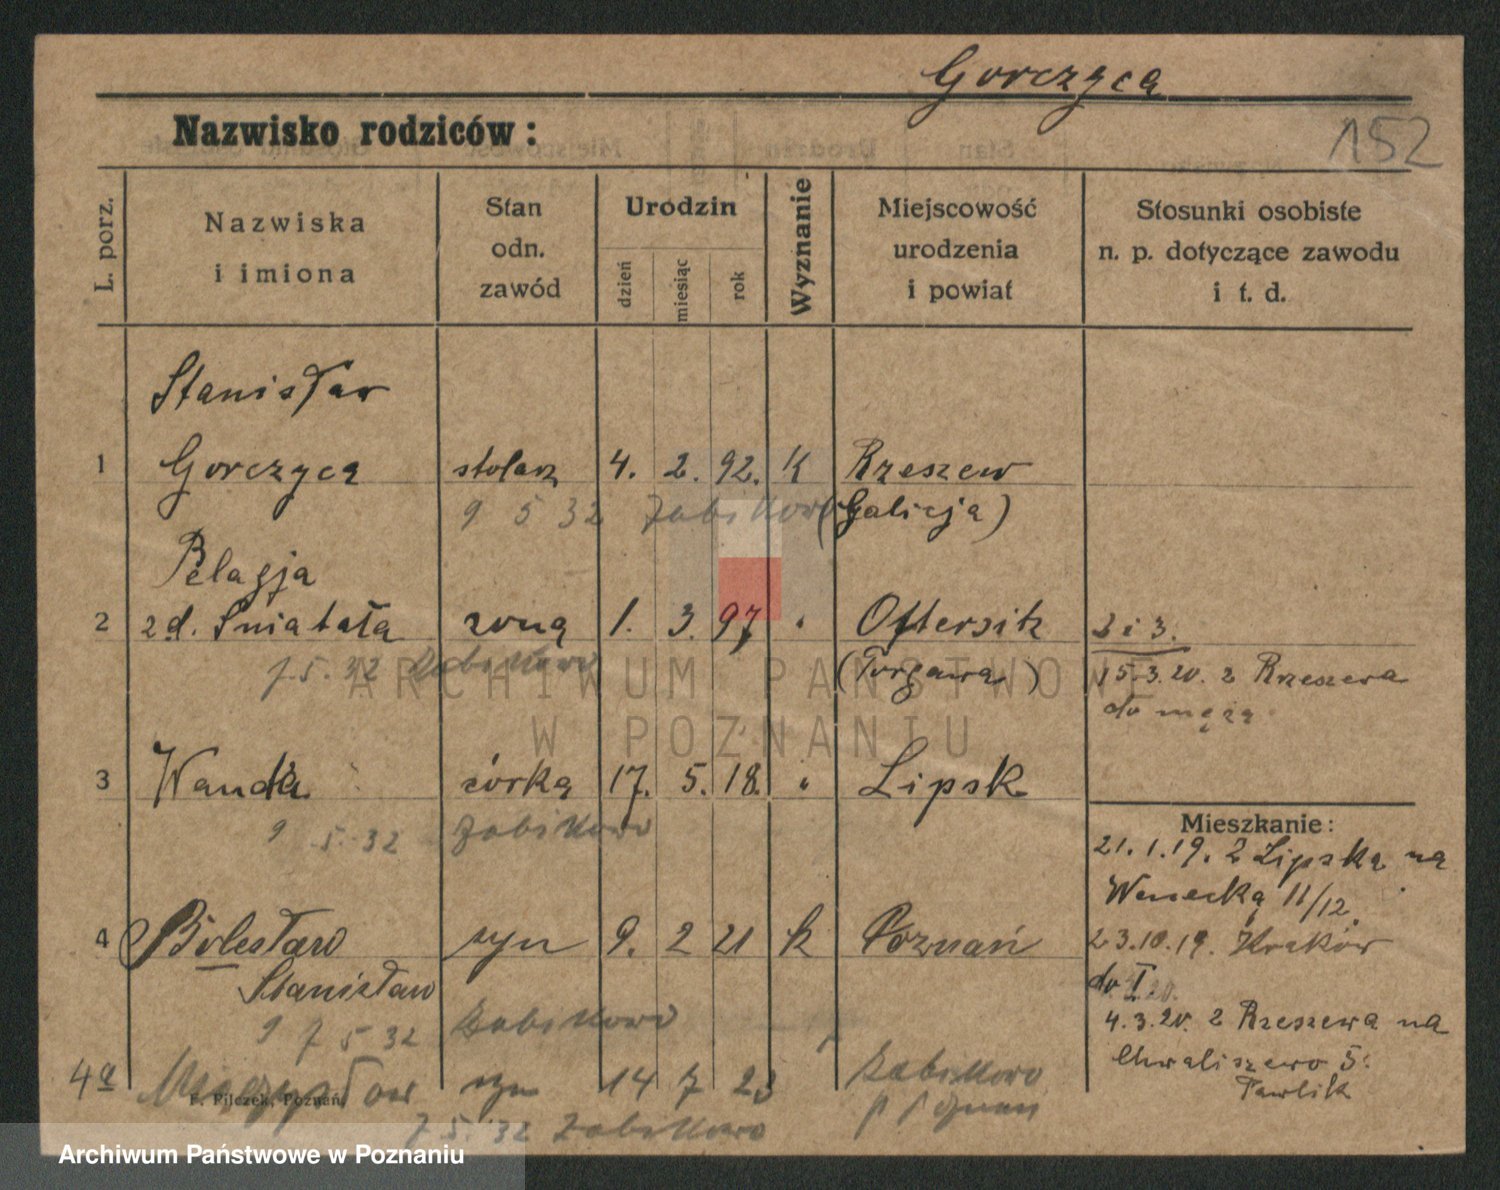 Gorczyca
Nazwisko rodziców:
152
L. porz.
Nazwiska
i imiona
Stan
odn.
zawód
Urodzin
dzień
miesiąc
rok
Wyznanie
Miejscowość
urodzenia
i powiat
Stosunki osobiste
n. p. dotyczące zawodu
i t. d.
Stanisław
1 Gorczyca stolarz 4. 2. 92. K Rzeszew
9 5 32 Żabikowo (Galicja)
Pelagja
2 zd. Śniatała żona 1. 3. 97 " 2 i 3.
7. 5. 32 Żabikowo (Torgawa)
15.3.20. z Rzeszewa
do męża
3 Wanda córka 17. 5. 18. " Lipsk
9 5. 32 Żabikowo
Mieszkanie:
21. 1. 19. z Lipska na
Wenecką 11/12.
4 Bolesław syn 9. 2 21 k Poznań
23.10.19. Kraków
Stanisław
do I.
9 7 5 32 Żabikowo
4.3.20. z Rzeszewa na
Chwaliszewo 5.
Pawlik
4a syn 14 7 23 Żabikowo
p Poznań
F. Pilczek, Poznań
7 5. 32 Żabikowo
ARCHIWUM PAŃSTWOWE
W POZNANIU
Archiwum Państwowe w Poznaniu